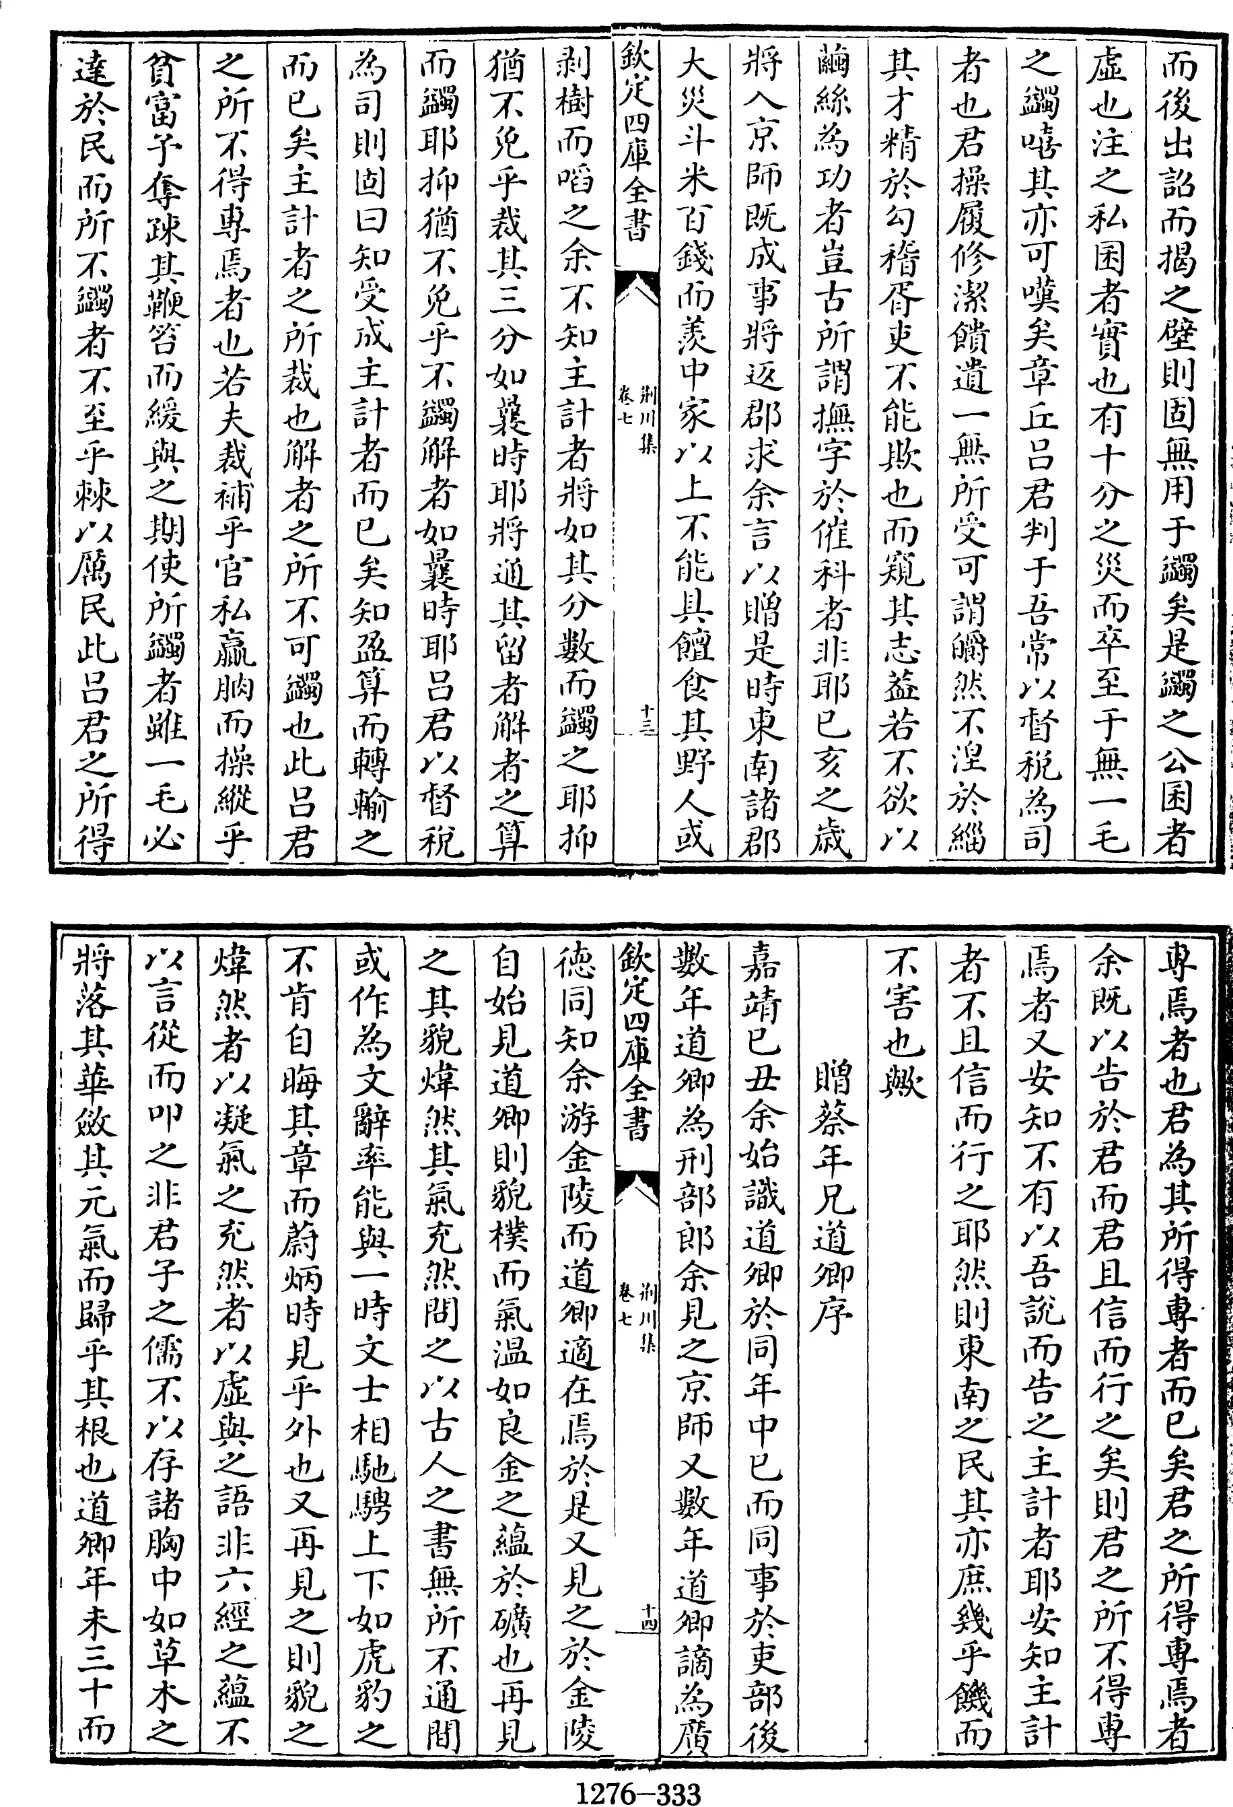 而後出詔而揭之壁則固無用于蠲矣是蠲之公囷者
虛也注之私囷者實也有十分之災而卒至于無一毛
之蠲嘻其亦可嘆矣章丘呂君判于吾常以督稅為司
者也君操履修潔饋遺一無所受可謂皭然不湼於緇
其才精於勾稽胥吏不能欺也而窺其志葢若不欲以
繭絲為功者豈古所謂撫字於催科者非耶已亥之歳
將入京師既成事將返郡求余言以贈是時東南諸郡
大災斗米百錢而羨中家以上不能具饘食其野人或
欽定四庫全書
荆川集
卷七
十三
剥樹而㗖之余不知主計者將如其分數而蠲之耶抑
猶不免乎裁其三分如曩時耶將通其留者解者之算
而蠲耶抑猶不免乎不蠲解者如曩時耶呂君以督稅
為司則固曰知受成主計者而已矣知盈算而轉輸之
而已矣主計者之所裁也解者之所不可蠲也此呂君
之所不得專焉者也若夫裒補乎官私贏朒而操縱乎
貧富予奪疎其鞭笞而緩與之期使所蠲者雖一毛必
達於民而所不蠲者不至乎棘以厲民此呂君之所得
專焉者也君為其所得專者而已矣君之所得專焉者
余既以告於君而君且信而行之矣則君之所不得專
焉者又安知不有以吾說而告之主計者耶安知主計
者不且信而行之耶然則東南之民其亦庶幾乎饑而
不害也歟
贈蔡年兄道卿序
嘉靖已丑余始識道卿於同年中已而同事於吏部後
數年道卿為刑部郎余見之京師又數年道卿謫為廣
欽定四庫全書
荆川集
卷七
十四
徳同知余游金陵而道卿適在焉於是又見之於金陵
自始見道卿則貌樸而氣温如良金之蘊於礦也再見
之其貌煒然其氣充然問之以古人之書無所不通間
或作為文辭率能與一時文士相馳騁上下如虎豹之
不肯自晦其章而蔚炳時見乎外也又再見之則貌之
煒然者以凝氣之充然者以虛與之語非六經之蘊不
以言從而叩之非君子之儒不以存諸胸中如草木之
將落其華斂其元氣而歸乎其根也道卿年未三十而
1276-333